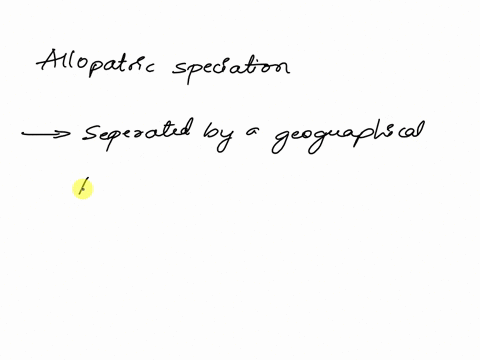 Allopatric speciation
→ seperated by a geographical